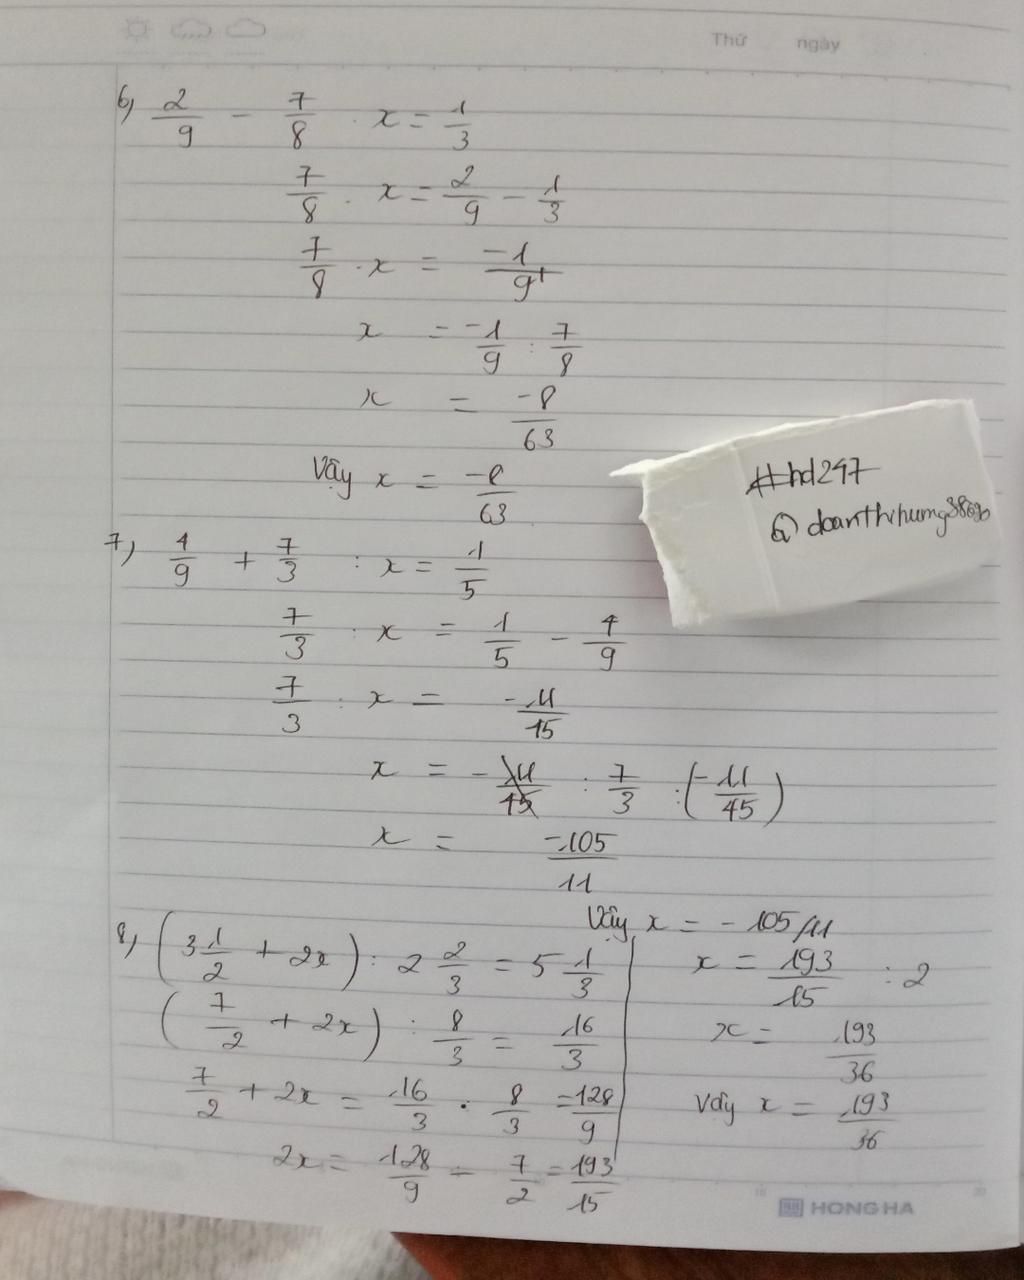 Thứ ngày
6, 2/9 - 7/8 . x = 1/3
7/8 . x = 2/9 - 1/3
7/8 . x = -1/9
x = -1/9 : 7/8
x = -8/63
Vậy x = -8/63
#hd247
@doanthihumg38690
7, 4/9 + 7/3 : x = 1/5
7/3 : x = 1/5 - 4/9
7/3 : x = -11/15
x = -11/45 : 7/3 : (-11/45)
x = -105/11
Vậy x = -105/11
8, (3 1/2 + 2x) : 2 2/3 = 5 1/3
(7/2 + 2x) : 8/3 = 16/3
7/2 + 2x = 16/3 . 8/3 = 128/9
2x = 128/9 - 7/2 = 193/15
x = 193/15 : 2
x = 193/36
Vậy x = 193/36
HONG HA